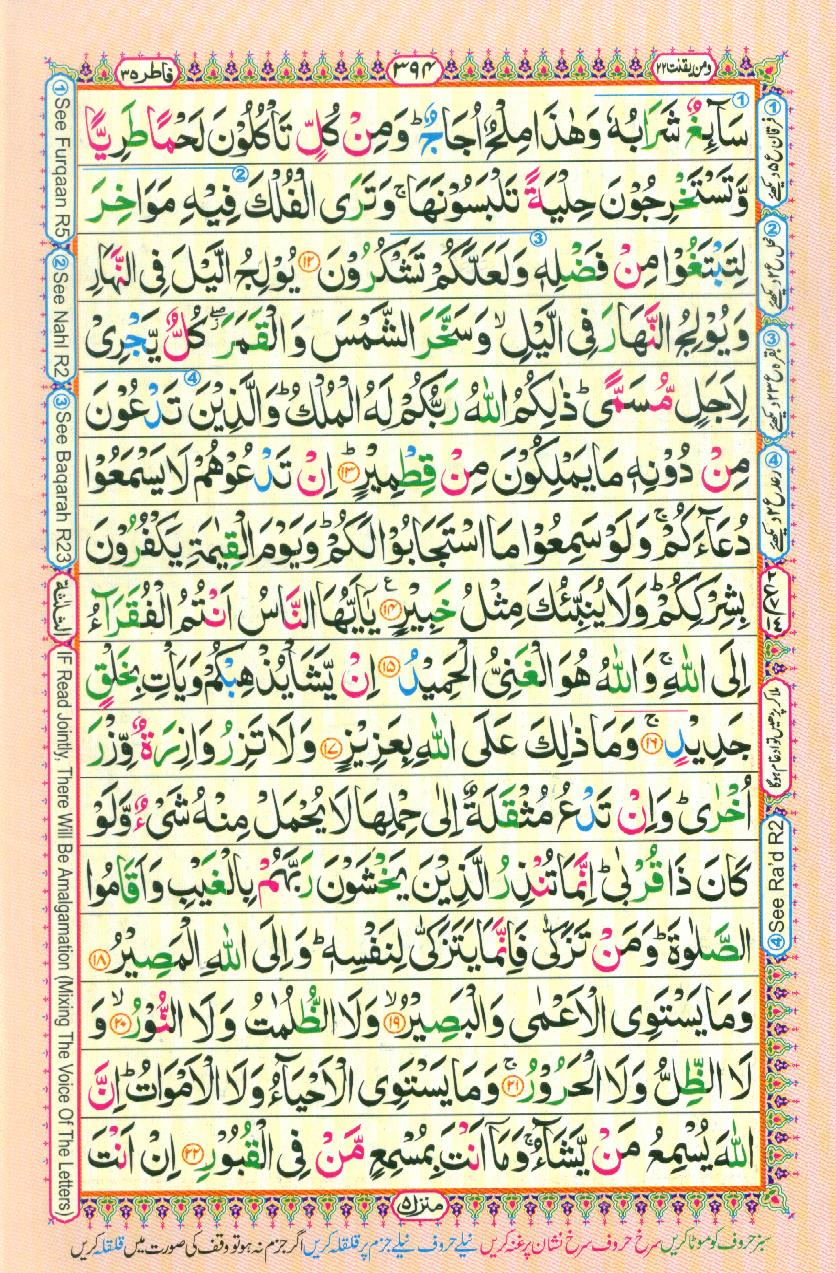 ومن یقنت ۲۲
۳۹۴
فاطر ۳۵
سَآىِٕغٌ شَرَابُهٗ وَهٰذَا مِلْحٌ اُجَاجٌ ؕ وَمِنْ كُلٍّ تَاْكُلُوْنَ لَحْمًا طَرِیًّا
وَّتَسْتَخْرِجُوْنَ حِلْیَةً تَلْبَسُوْنَهَا ۚ وَتَرَی الْفُلْكَ فِیْهِ مَوَاخِرَ
لِتَبْتَغُوْا مِنْ فَضْلِهٖ وَلَعَلَّكُمْ تَشْكُرُوْنَ ۱۲ یُوْلِجُ الَّیْلَ فِی النَّهَارِ
وَیُوْلِجُ النَّهَارَ فِی الَّیْلِ ۙ وَسَخَّرَ الشَّمْسَ وَالْقَمَرَ ۖؗ كُلٌّ یَّجْرِیْ
لِاَجَلٍ مُّسَمًّی ؕ ذٰلِكُمُ اللّٰهُ رَبُّكُمْ لَهُ الْمُلْكُ ؕ وَالَّذِیْنَ تَدْعُوْنَ
مِنْ دُوْنِهٖ مَا یَمْلِكُوْنَ مِنْ قِطْمِیْرٍ ؕ ۱۳ اِنْ تَدْعُوْهُمْ لَا یَسْمَعُوْا
دُعَآءَكُمْ ۚ وَلَوْ سَمِعُوْا مَا اسْتَجَابُوْا لَكُمْ ؕ وَیَوْمَ الْقِیٰمَةِ یَكْفُرُوْنَ
بِشِرْكِكُمْ ؕ وَلَا یُنَبِّئُكَ مِثْلُ خَبِیْرٍ ۱۴ ع یٰۤاَیُّهَا النَّاسُ اَنْتُمُ الْفُقَرَآءُ
اِلَی اللّٰهِ ۚ وَاللّٰهُ هُوَ الْغَنِیُّ الْحَمِیْدُ ۱۵ اِنْ یَّشَاْ یُذْهِبْكُمْ وَیَاْتِ بِخَلْقٍ
جَدِیْدٍ ۚ ۱۶ وَمَا ذٰلِكَ عَلَی اللّٰهِ بِعَزِیْزٍ ۱۷ وَلَا تَزِرُ وَازِرَةٌ وِّزْرَ
اُخْرٰی ؕ وَاِنْ تَدْعُ مُثْقَلَةٌ اِلٰی حِمْلِهَا لَا یُحْمَلْ مِنْهُ شَیْءٌ وَّلَوْ
كَانَ ذَا قُرْبٰی ؕ اِنَّمَا تُنْذِرُ الَّذِیْنَ یَخْشَوْنَ رَبَّهُمْ بِالْغَیْبِ وَاَقَامُوا
الصَّلٰوةَ ؕ وَمَنْ تَزَكّٰی فَاِنَّمَا یَتَزَكّٰی لِنَفْسِهٖ ؕ وَاِلَی اللّٰهِ الْمَصِیْرُ ۱۸
وَمَا یَسْتَوِی الْاَعْمٰی وَالْبَصِیْرُ ۙ ۱۹ وَلَا الظُّلُمٰتُ وَلَا النُّوْرُ ۙ ۲۰ وَ
لَا الظِّلُّ وَلَا الْحَرُوْرُ ۚ ۲۱ وَمَا یَسْتَوِی الْاَحْیَآءُ وَلَا الْاَمْوَاتُ ؕ اِنَّ
اللّٰهَ یُسْمِعُ مَنْ یَّشَآءُ ۚ وَمَاۤ اَنْتَ بِمُسْمِعٍ مَّنْ فِی الْقُبُوْرِ ۲۲ اِنْ اَنْتَ
منزل ۵
سبز حروف کو موٹا کریں سرخ حروف سرخ نشان پر غنہ کریں نیلے حروف نیلے جزم پر قلقلہ کریں اگر جزم نہ ہو تو وقف کی صورت میں قلقلہ کریں
① See Furqaan R5
② See Nahl R2
③ See Baqarah R23
IF Read Jointly, There Will Be Amalgamation (Mixing The Voice Of The Letters)
① فرقان ع ۵ دیکھئے
② نحل ع ۲ دیکھئے
③ بقرہ ع ۲۳ دیکھئے
④ رعد ع ۲ دیکھئے
ملا کر پڑھیں تو ادغام ہوگا
④ See Ra'd R2